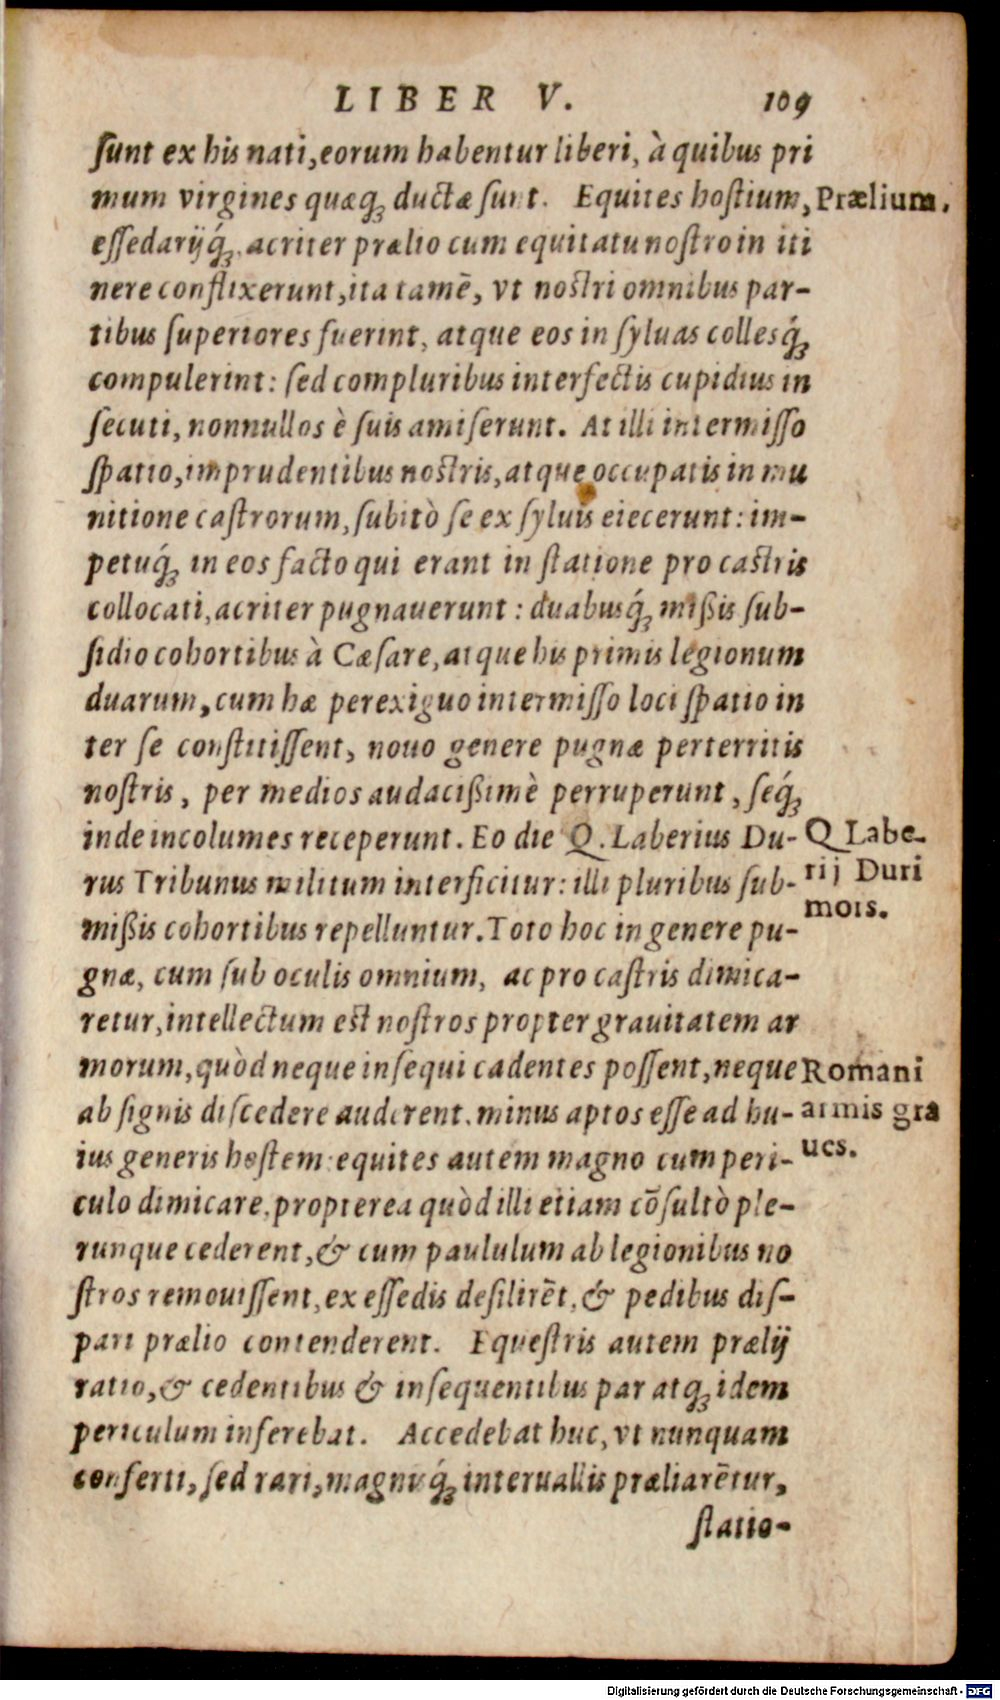 LIBER V. 109
ſunt ex his nati, eorum habentur liberi, à quibus pri
mum virgines quæq; ductæ ſunt. Equites hoſtium,
Prælium.
eſſedarijq́; acriter prælio cum equitatu noſtro in iti
nere conflixerunt, ita tamē, vt noſtri omnibus par-
tibus ſuperiores fuerint, atque eos in ſyluas collesq́;
compulerint: ſed compluribus interfectis cupidius in
ſecuti, nonnullos è ſuis amiſerunt. At illi intermiſſo
ſpatio, imprudentibus noſtris, atque occupatis in mu
nitione caſtrorum, ſubitò ſe ex ſyluis eiecerunt: im-
petuq́; in eos facto qui erant in ſtatione pro caſtris
collocati, acriter pugnauerunt: duabusq́; mißis ſub-
ſidio cohortibus à Cæſare, atque his primis legionum
duarum, cum hæ perexiguo intermiſſo loci ſpatio in
ter ſe conſtitiſſent, nouo genere pugnæ perterritis
noſtris, per medios audacißimè perruperunt, ſeq́;
inde incolumes receperunt. Eo die Q. Laberius Du-
rus Tribunus militum interficitur: illi pluribus ſub-
Q Labe-
rij Duri
mors.
mißis cohortibus repelluntur. Toto hoc in genere pu-
gnæ, cum ſub oculis omnium, ac pro caſtris dimica-
retur, intellectum eſt noſtros propter grauitatem ar
morum, quòd neque inſequi cadentes poſſent, neque
ab ſignis diſcedere auderent, minus aptos eſſe ad hu-
Romani
armis gra
ues.
ius generis hoſtem: equites autem magno cum peri-
culo dimicare, propterea quòd illi etiam cōſultò ple-
runque cederent, & cum paululum ab legionibus no
ſtros remouiſſent, ex eſſedis deſilirēt, & pedibus diſ-
pari prælio contenderent. Equeſtris autem prælij
ratio, & cedentibus & inſequentibus par atq; idem
periculum inferebat. Accedebat huc, vt nunquam
conferti, ſed rari, magnisq́; interuallis præliarētur,
ſtatio-
Digitalisierung gefördert durch die Deutsche Forschungsgemeinschaft - DFG